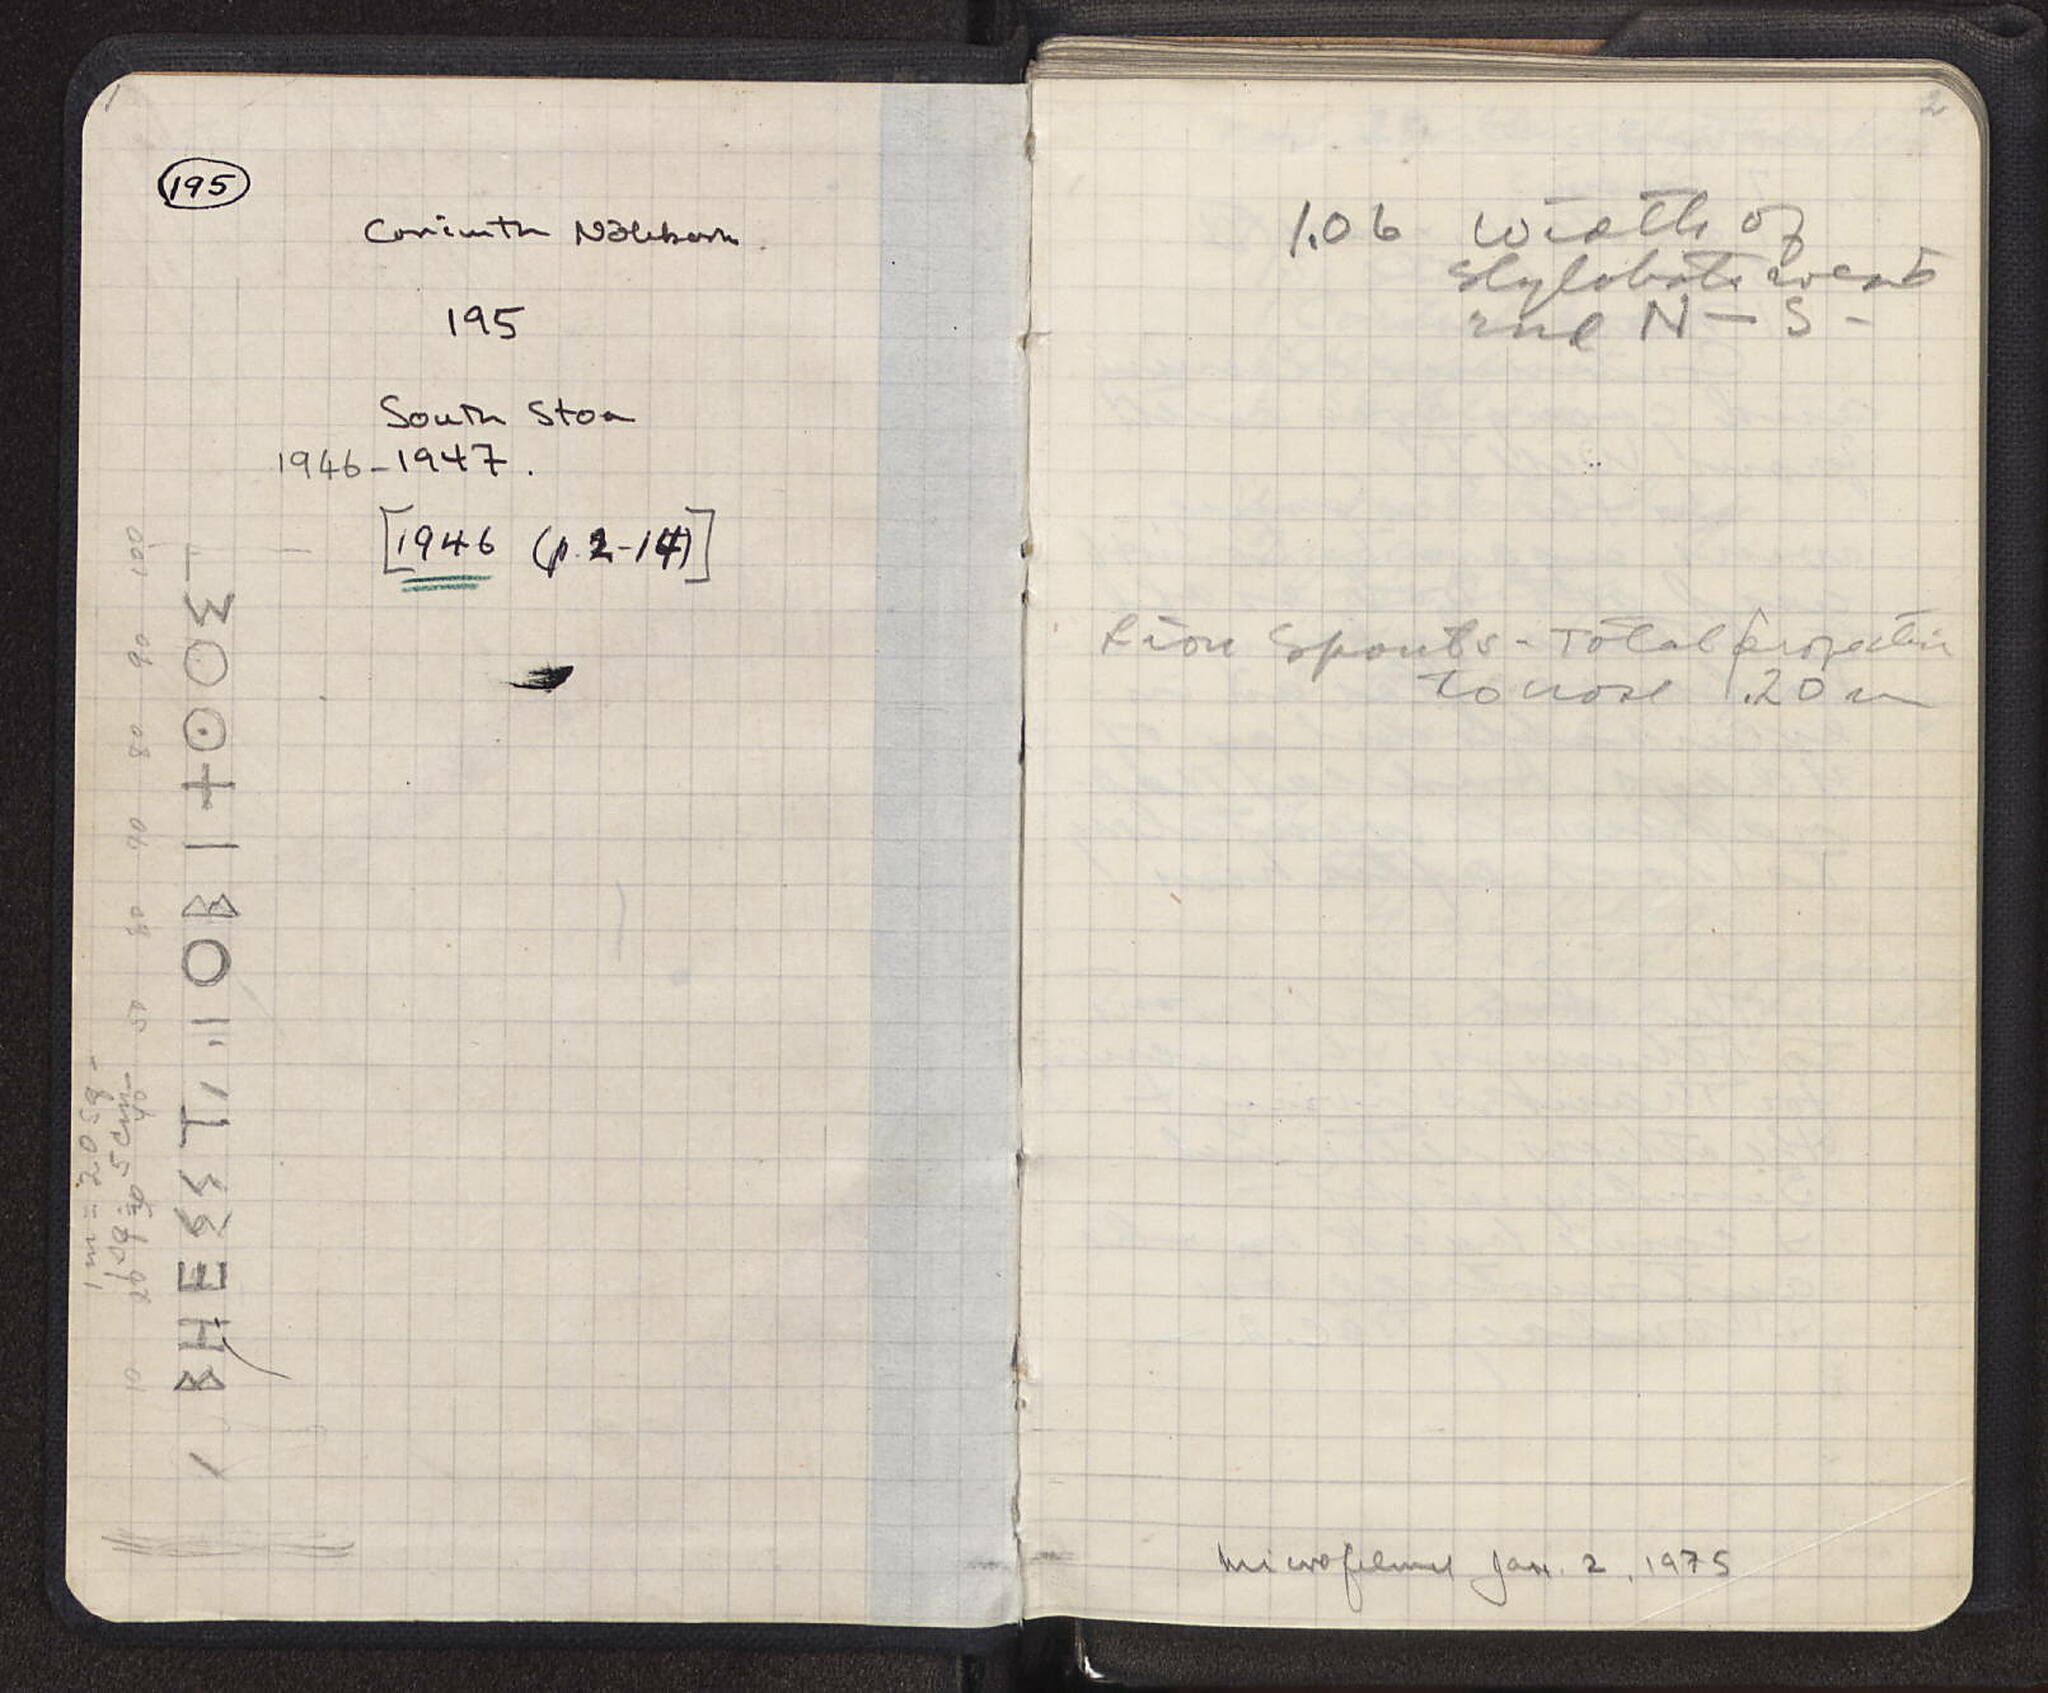 1
195
Corinth Notebook
195
South Stoa
1946-1947.
[1946 (p. 2-14)]
10 20 30 40 50 60 80 90 100
1 m = 2.059-
5 cm
2
1.06 Width of
stylobate west
end N-S-
Lion Spouts - Total projection
to nose .20 m
Microfilmed Jan. 2, 1975